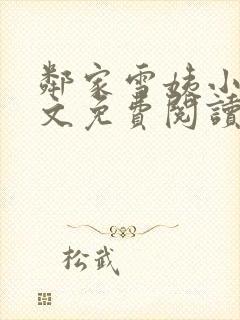 鄰家雪姨小
文免費閱讀
松武